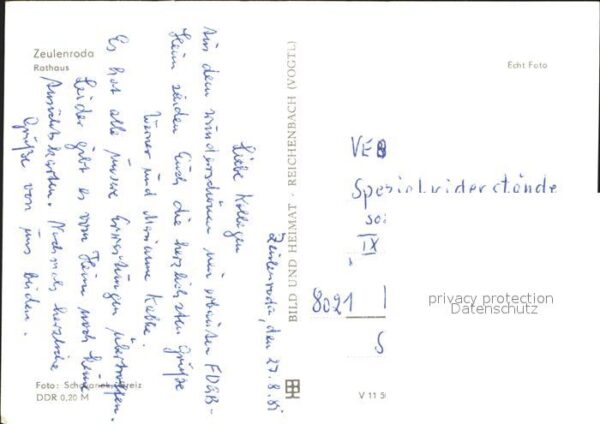 Zeulenroda
Rathaus
Echt Foto
Zeulenroda, den 27.8.81
Liebe Kollegen
Aus dem wunderschönen neu erbauten FDGB-
Heim senden Euch die herzlichsten Grüße
Werner und Marianne
Es hat alle unsere Erwartungen übertroffen.
Leider gibt es vom Heim noch keine
Ansichtskarten. Nochmals herzliche
Grüße von uns beiden.
BILD UND HEIMAT · REICHENBACH (VOGTL)
VEB
Spezialwiderstände
IX
8021
privacy protection
Datenschutz
Foto:
DDR 0,20 M
V 11 5